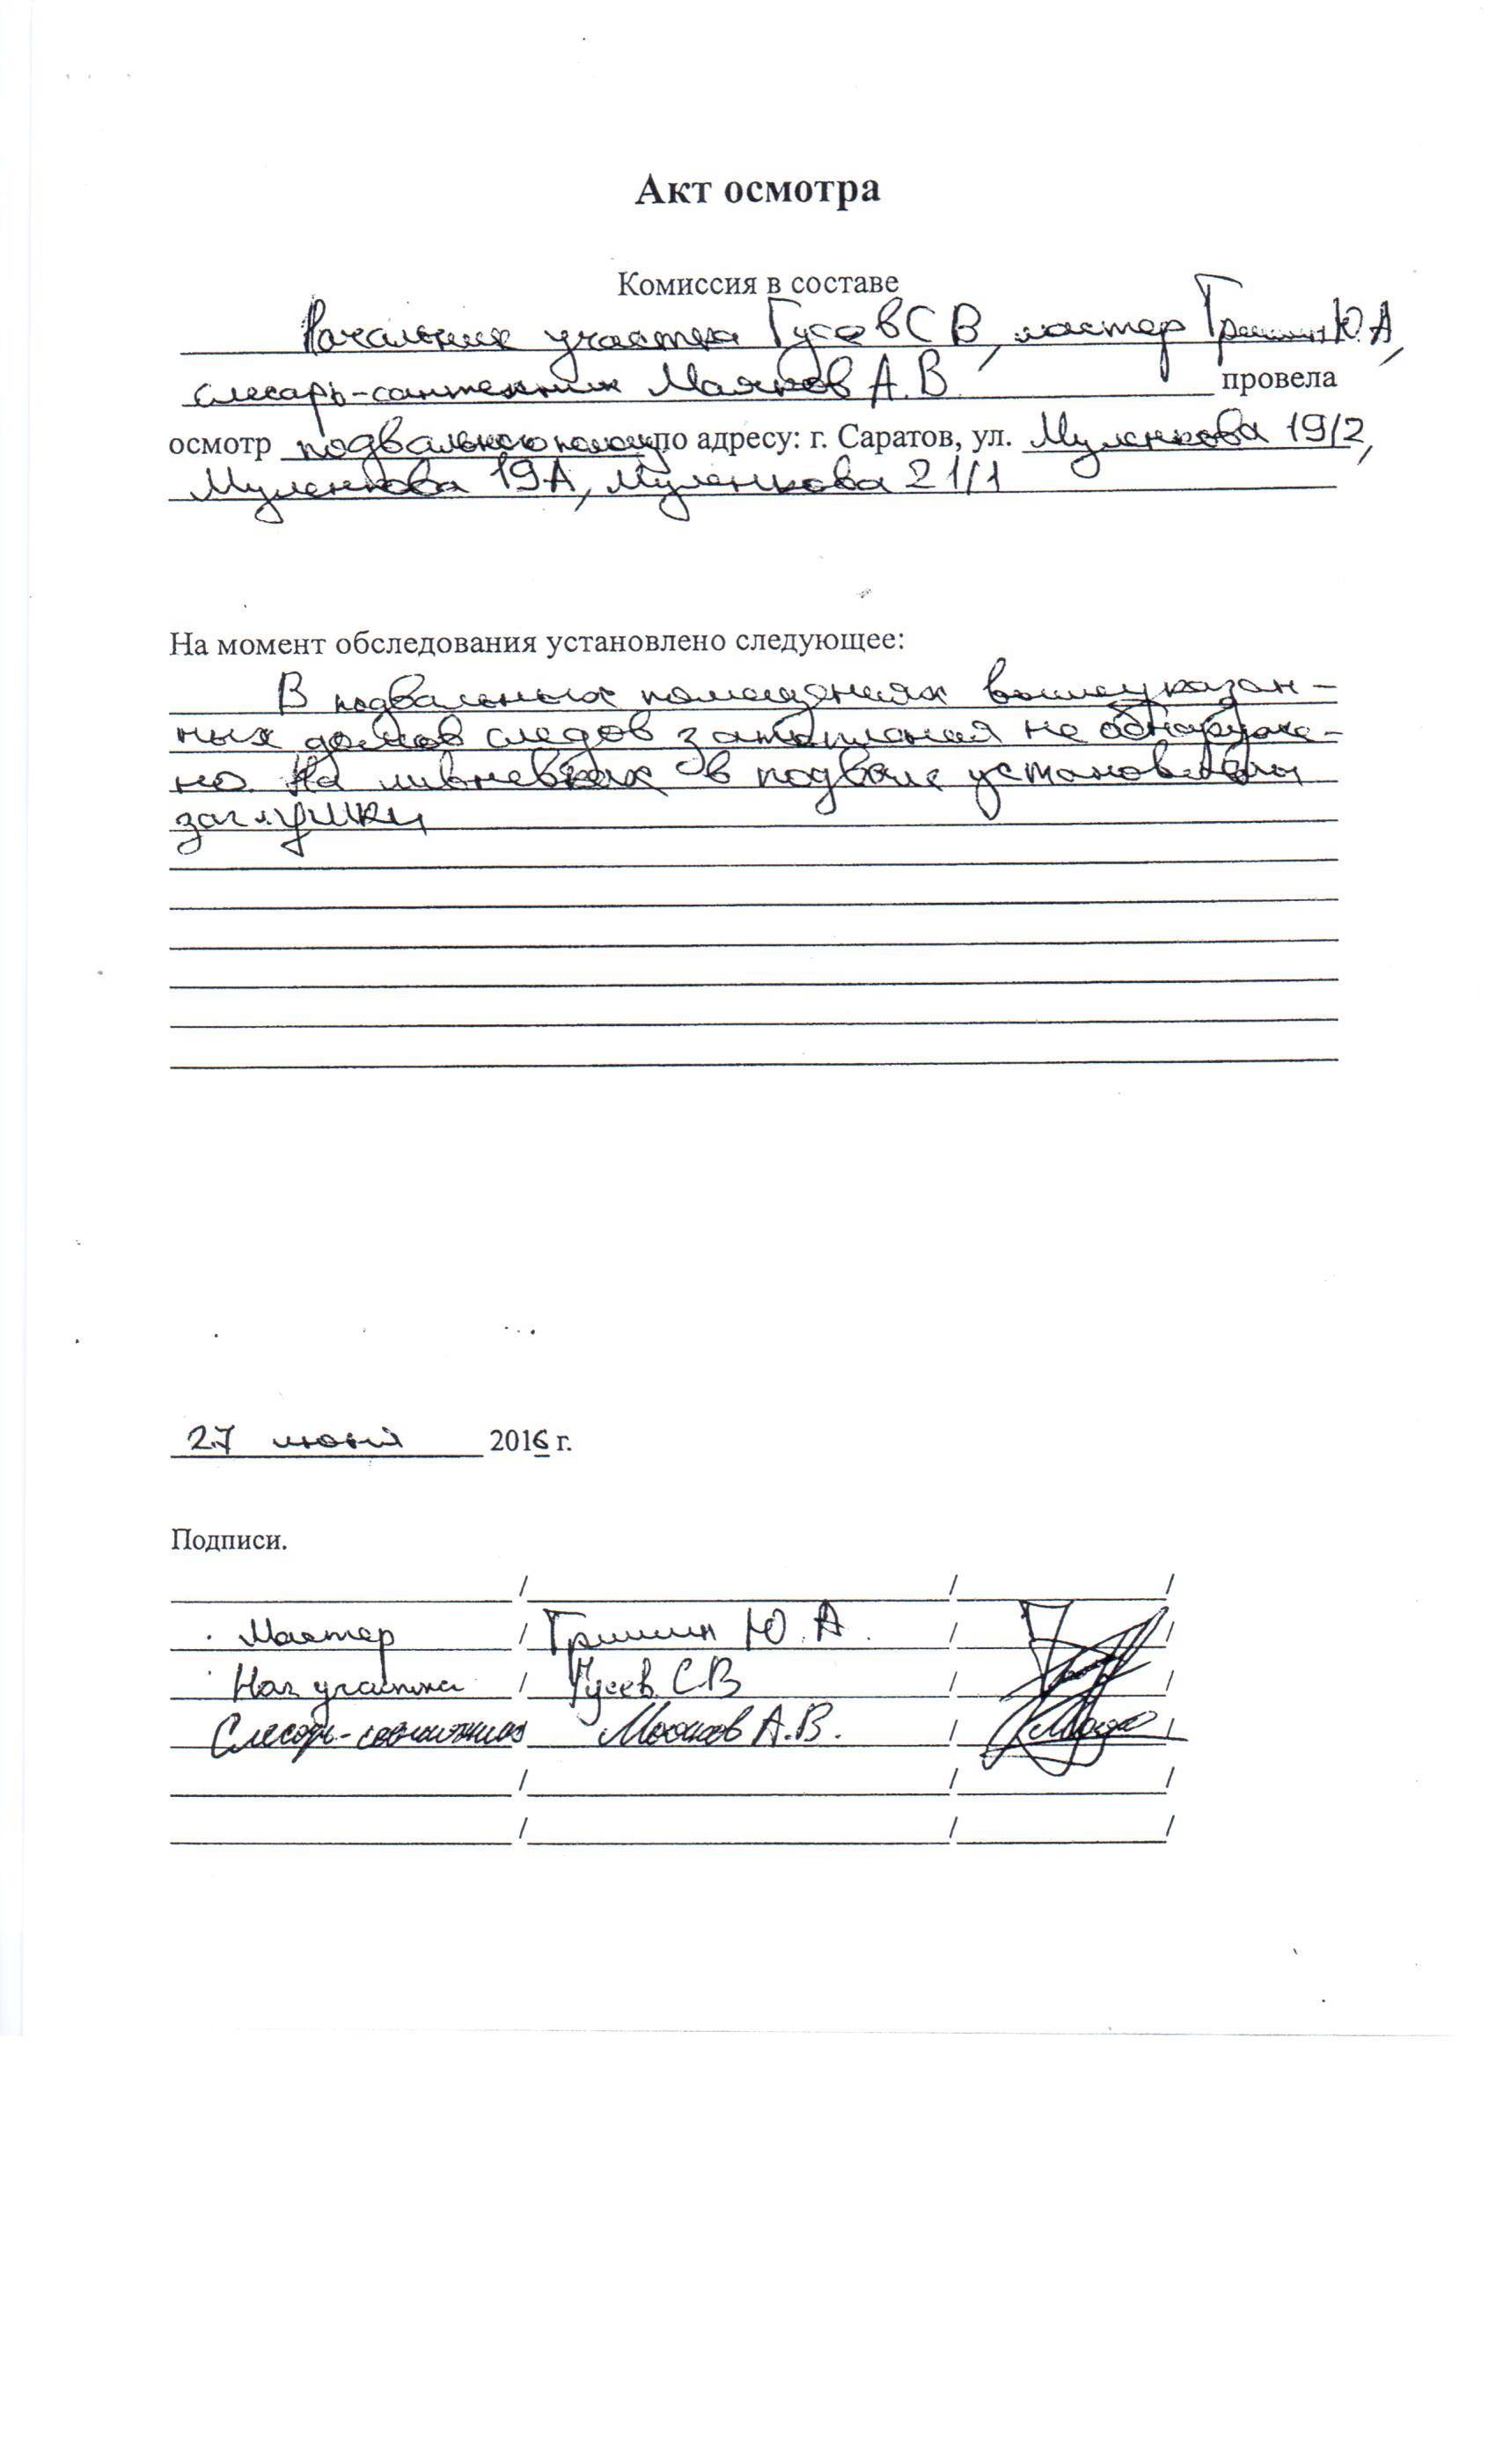 Акт осмотра
Комиссия в составе
Начальник участка Гусев С В, мастер Гришин Ю.А,
слесарь-сантехник Маяков А.В. провела
осмотр подвального помещ по адресу: г. Саратов, ул. Муленкова 19/2,
Муленкова 19А, Муленкова 21/1
На момент обследования установлено следующее:
В подвальных помещениях вышеуказан-
ных домов следов затопления не обнаруже-
но. На ливневках в подвале установлены
заглушки
27 июня 2016 г.
Подписи.
/ / /
Мастер / Гришин Ю.А. / /
Нач участка / Гусев С.В / /
Слесарь-сантехник Маяков А.В. /
/ / /
/ / /